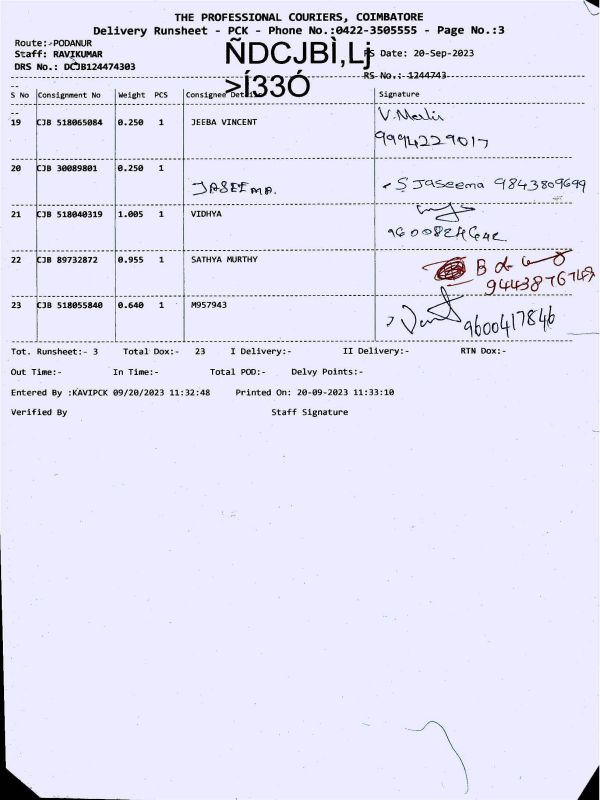 THE PROFESSIONAL COURIERS, COIMBATORE
Delivery Runsheet - PCK - Phone No.:0422-3505555 - Page No.:3
Route:-PODANUR
Staff: RAVIKUMAR
DRS No.: DCJB124474303
ÑDCJBÌ,Lj
>Í33Ó
RS Date: 20-Sep-2023
RS No.: 1244743
S No Consignment No Weight PCS Consignee Details Signature
19 CJB 518065084 0.250 1 JEEBA VINCENT
9994229017
20 CJB 30089801 0.250 1
JASEEMA. S Jaseema 9843809699
21 CJB 518040319 1.005 1 VIDHYA
22 CJB 89732872 0.955 1 SATHYA MURTHY
9443876749
23 CJB 518055840 0.640 1 M957943
9600417846
Tot. Runsheet:- 3 Total Dox:- 23 I Delivery:- II Delivery:- RTN Dox:-
Out Time:- In Time:- Total POD:- Delvy Points:-
Entered By :KAVIPCK 09/20/2023 11:32:48 Printed On: 20-09-2023 11:33:10
Verified By Staff Signature